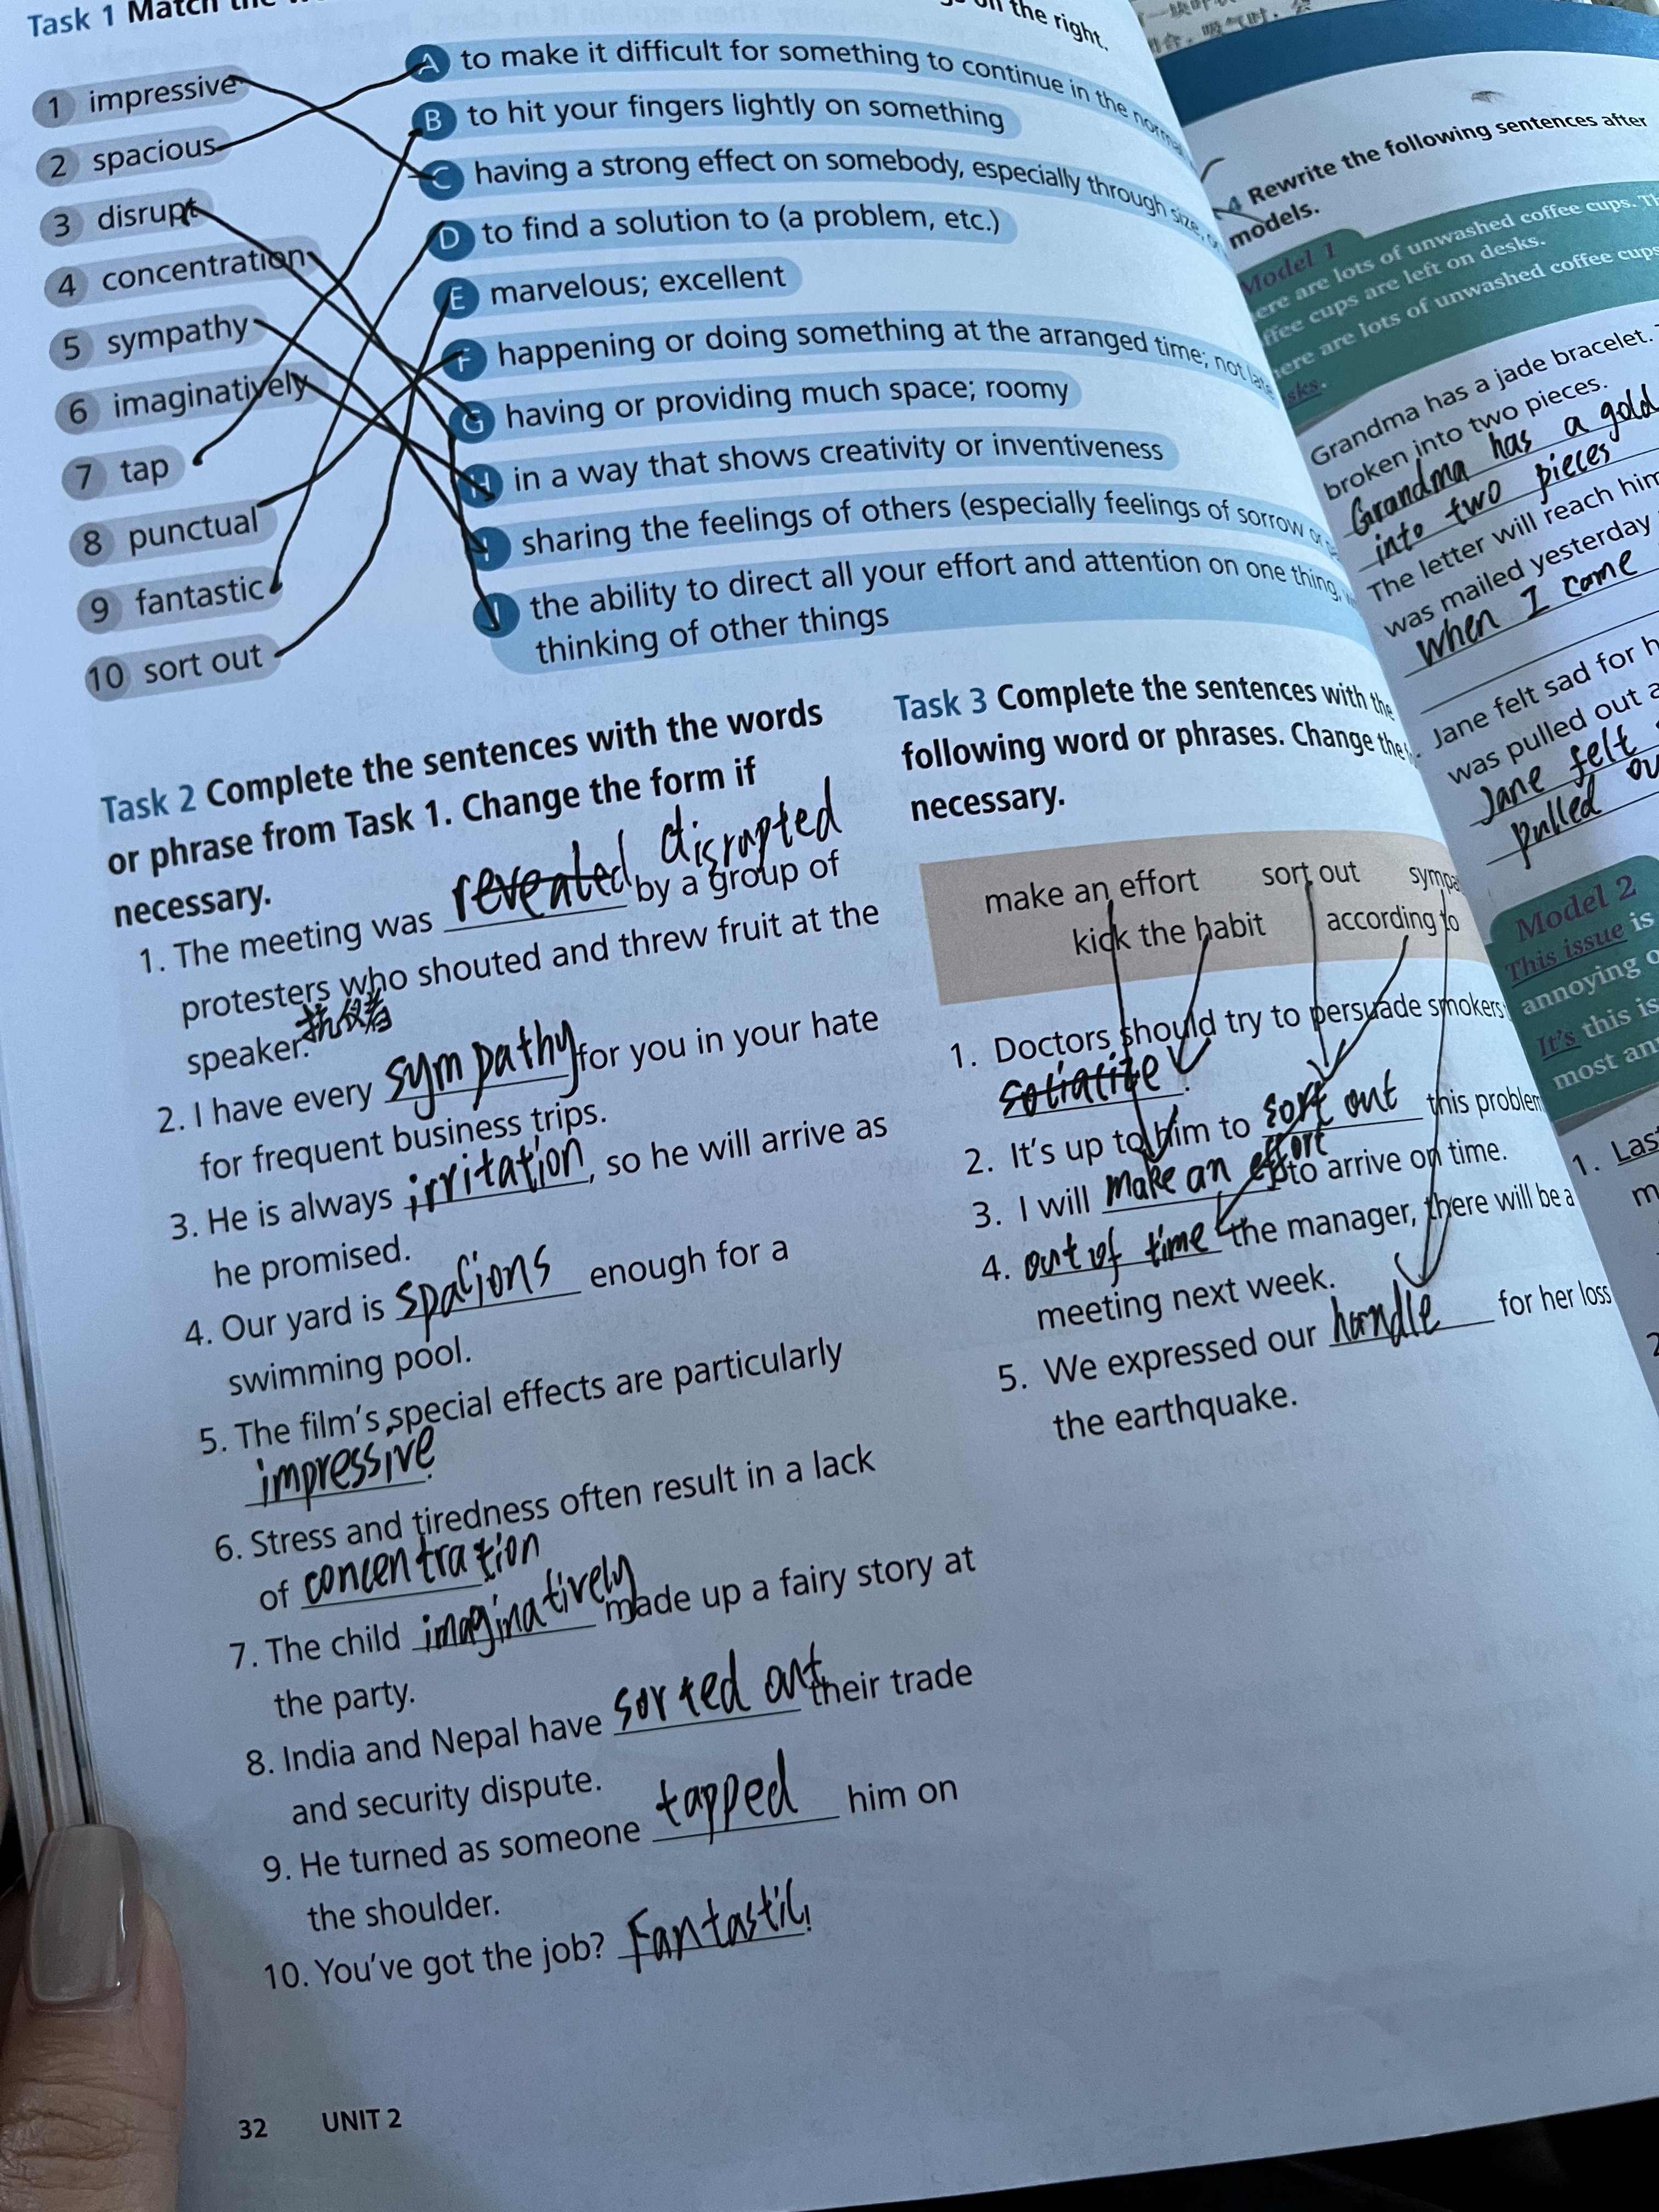 Task 1 Match the
on the right.
1 impressive
2 spacious
3 disrupt
4 concentration
5 sympathy
6 imaginatively
7 tap
8 punctual
9 fantastic
10 sort out
A to make it difficult for something to continue in the
B to hit your fingers lightly on something
C having a strong effect on somebody, especially through size,
D to find a solution to (a problem, etc.)
E marvelous; excellent
F happening or doing something at the arranged time; not late
G having or providing much space; roomy
H in a way that shows creativity or inventiveness
I sharing the feelings of others (especially feelings of sorrow or
J the ability to direct all your effort and attention on one thing,
thinking of other things
Task 2 Complete the sentences with the words
or phrase from Task 1. Change the form if
necessary.
1. The meeting was revealed disrupted by a group of
protesters who shouted and threw fruit at the
speaker.
2. I have every sympathy for you in your hate
for frequent business trips.
3. He is always irritation, so he will arrive as
he promised.
4. Our yard is spacions enough for a
swimming pool.
5. The film's special effects are particularly
impressive.
6. Stress and tiredness often result in a lack
of concentration
7. The child imaginatively made up a fairy story at
the party.
8. India and Nepal have sorted out their trade
and security dispute.
9. He turned as someone tapped him on
the shoulder.
10. You've got the job? Fantastic!
Task 3 Complete the sentences with the
following word or phrases. Change the
necessary.
make an effort sort out
kick the habit according to
1. Doctors should try to persuade smokers
.
2. It's up to him to sort out this problem
3. I will make an effort to arrive on time.
4. out of time the manager, there will be a
meeting next week.
5. We expressed our handle for her loss
the earthquake.
32 UNIT 2
4 Rewrite the following sentences after
models.
Model 1
There are lots of unwashed coffee cups.
coffee cups are left on desks.
There are lots of unwashed coffee cups
desks.
Grandma has a jade bracelet.
broken into two pieces.
Grandma has a gold
into two pieces
The letter will reach him
was mailed yesterday
when I come
Jane felt sad for
was pulled out
Jane felt
pulled
Model 2
This issue is
annoying
It's this is
most
1. Last